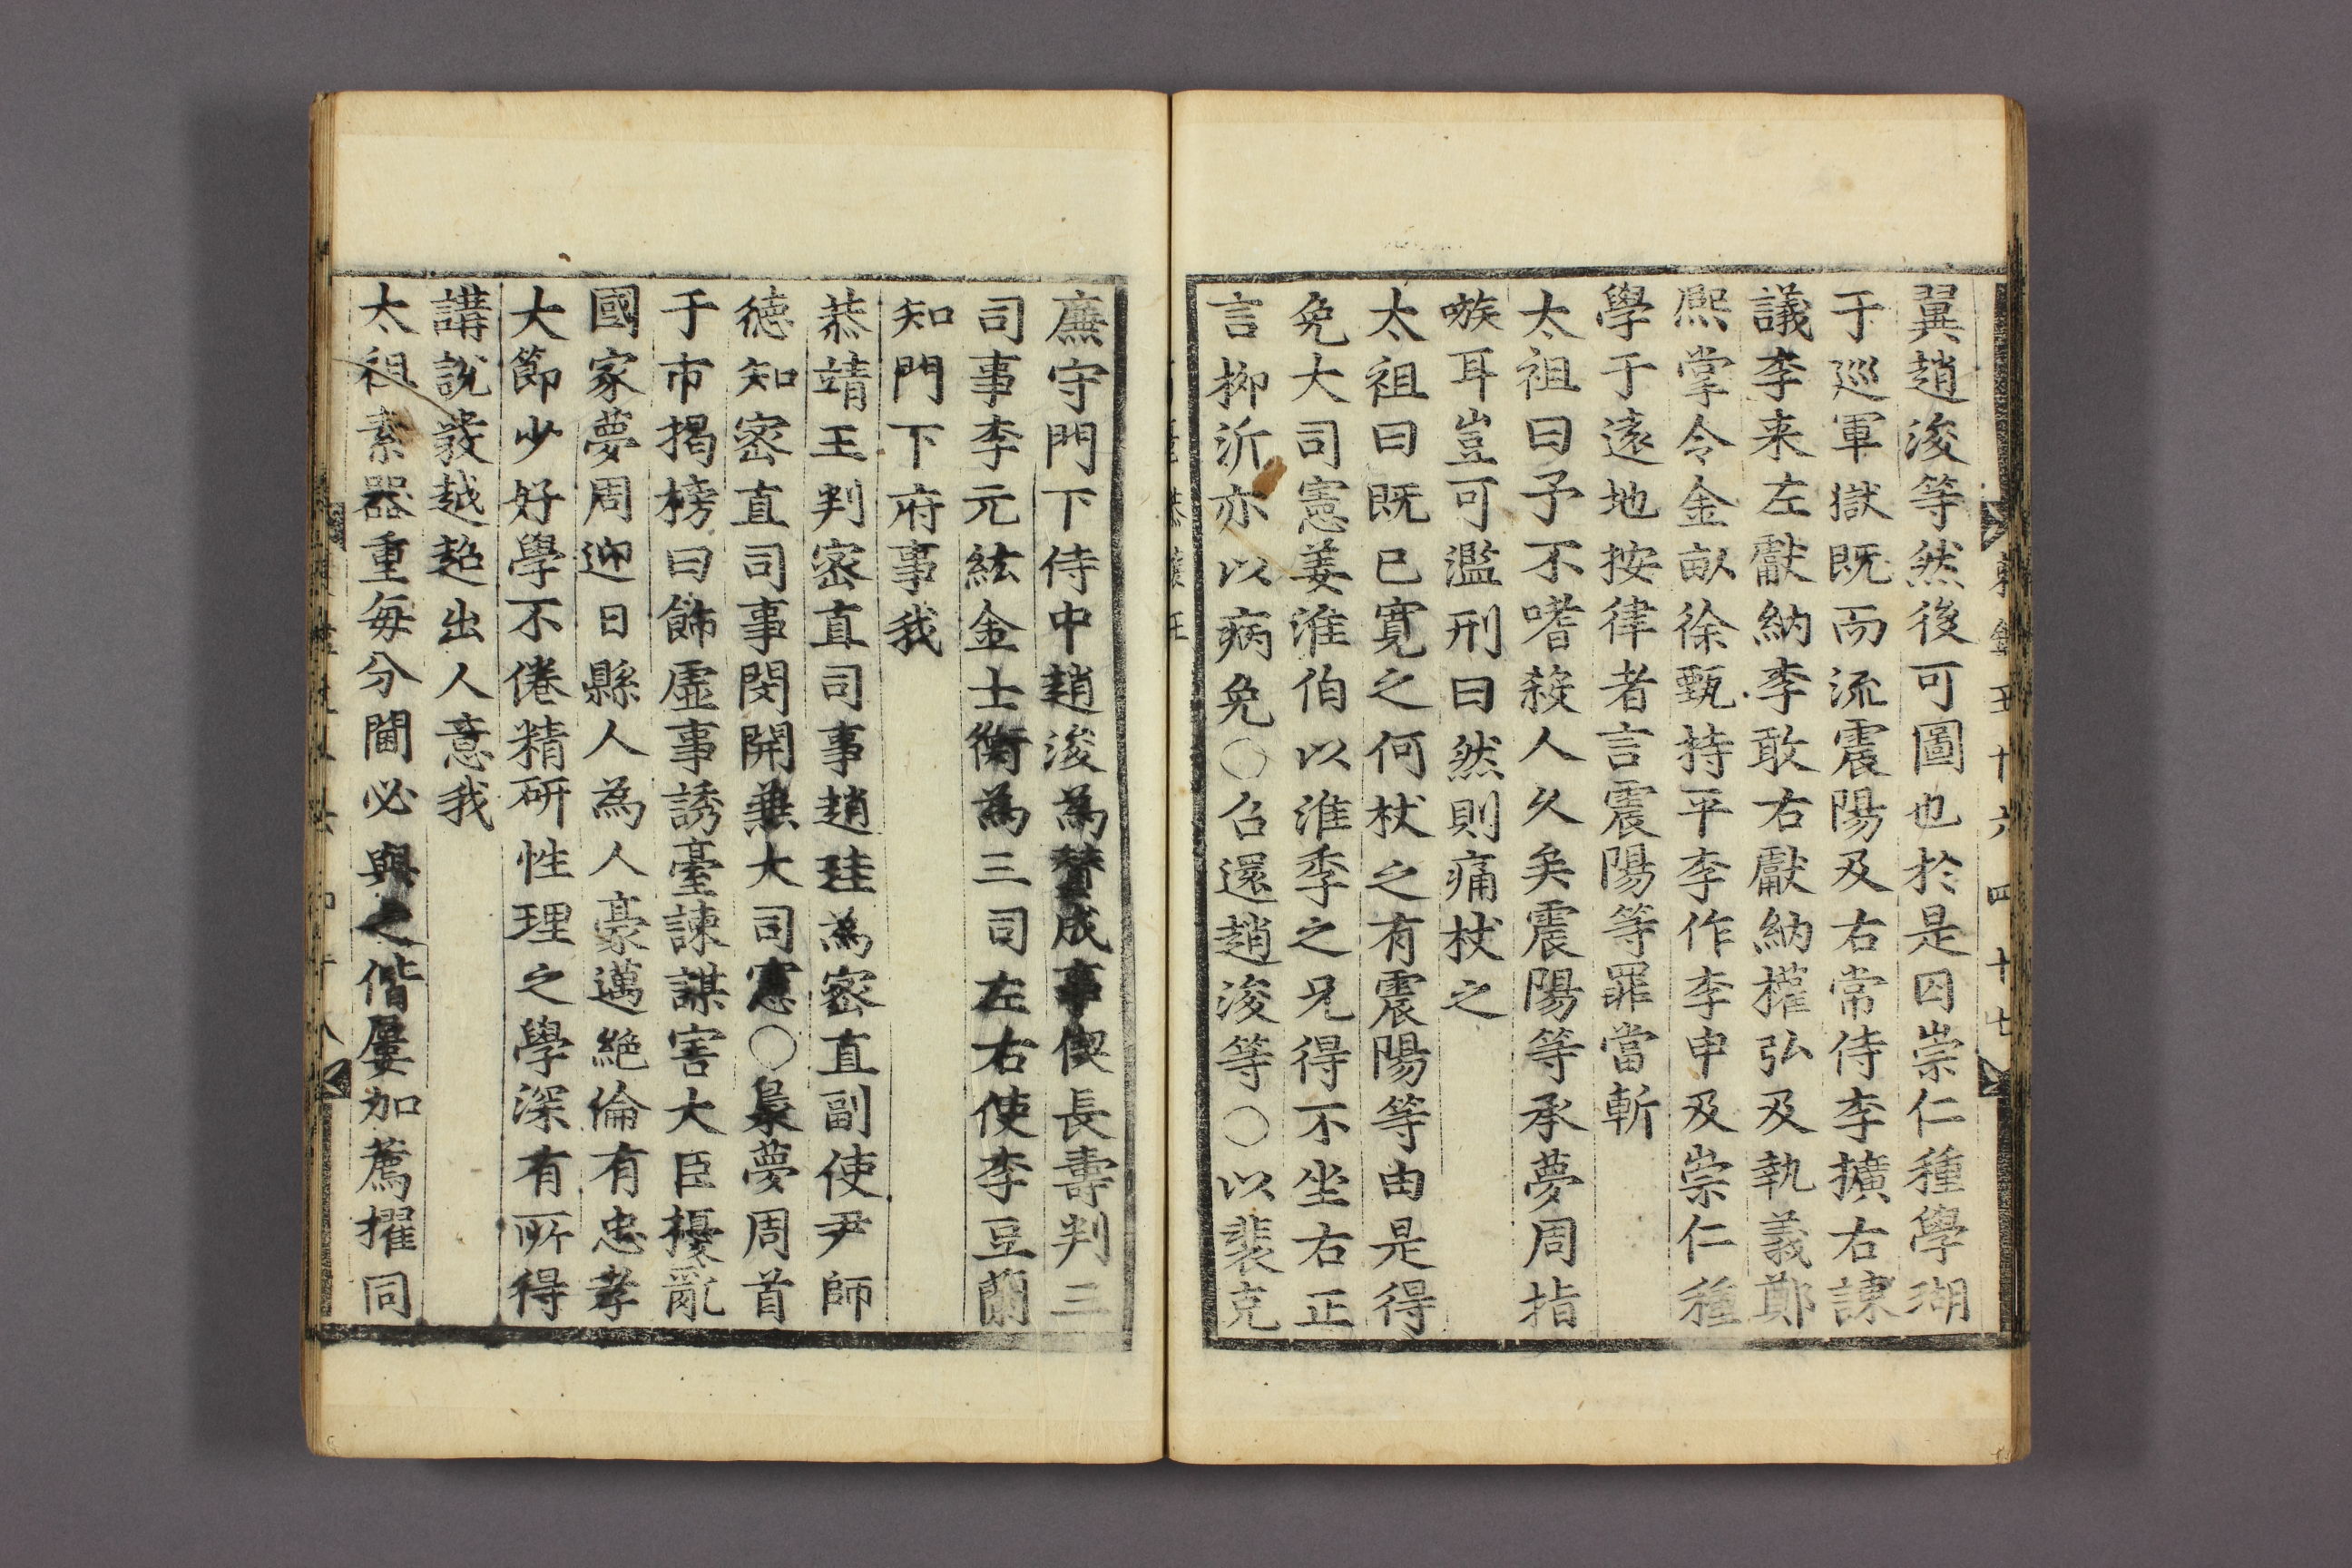 翼趙浚等然後可圖也於是囚崇仁種學瑚
于巡軍獄旣而流震陽及右常侍李擴右諫
議李来左獻納李敢右獻納權弘及執義鄭
熙掌令金畝徐甄持平李作李申及崇仁種
學于遠地按律者言震陽等罪當斬
太祖曰予不嗜殺人久矣震陽等承夢周指
嗾耳豈可濫刑曰然則痛杖之
太祖曰旣已寬之何杖之有震陽等由是得
免大司憲姜淮伯以淮季之兄得不坐右正
言柳沂亦以病免○召還趙浚等○以裴克
廉守門下侍中趙浚為賛成事偰長壽判三
司事李元紘金士衡為三司左右使李豆蘭
知門下府事我
恭靖王判密直司事趙珪為密直副使尹師
德知密直司事閔開兼大司憲○梟夢周首
于市揭榜曰飾虛事誘臺諫謀害大臣擾亂
國家夢周迎日縣人為人豪邁絶倫有忠孝
大節少好學不倦精研性理之學深有所得
講說發越超出人意我
太祖素器重每分閫必與之偕屢加薦擢同
五十六 四十七